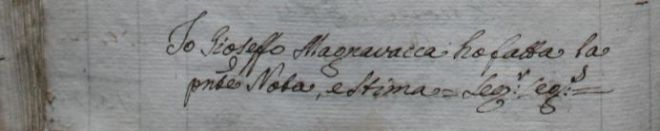 Io Gioseffo Magnavacca ho fatta la
pnte Nota, e stima =